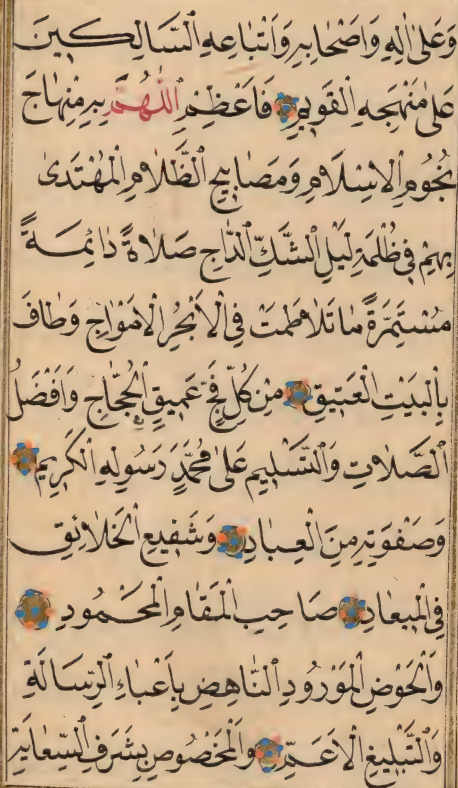 وَعَلىٰ اٰلِهِ وَاَصْحَابِهِ وَاَتْبَاعِهِ السَّالِكِينَ
عَلىٰ مَنْهَجِهِ الْقَوِيمِ فَاَعْظِمِ اللّٰهُمَّ بِهِ مِنْهَاجَ
نُجُومِ الْاِسْلَامِ وَمَصَابِيحِ الظَّلَامِ الْمُهْتَدىٰ
بِهِمْ فِى ظُلْمَةِ لَيْلِ الشَّكِّ الدَّاجِ صَلَاةً دَائِمَةً
مُسْتَمِرَّةً مَا تَلَاطَمَتْ فِى الْاَبْحُرِ الْاَمْوَاجِ وَطَافَ
بِالْبَيْتِ الْعَتِيقِ مِنْ كُلِّ فَجٍّ عَمِيقٍ الْحُجَّاجُ وَاَفْضَلُ
الصَّلَاتِ وَالتَّسْلِيمِ عَلىٰ مُحَمَّدٍ رَسُولِهِ الْكَرِيمِ
وَصَفْوَتِهِ مِنَ الْعِبَادِ وَشَفِيعِ الْخَلَائِقِ
فِى الْمِيعَادِ صَاحِبِ الْمَقَامِ الْمَحْمُودِ
وَالْحَوْضِ الْمَوْرُودِ النَّاهِضِ بِاَعْبَاءِ الرِّسَالَةِ
وَالتَّبْلِيغِ الْاَعَمِّ وَالْمَخْصُوصِ بِشَرَفِ السِّعَايَةِ